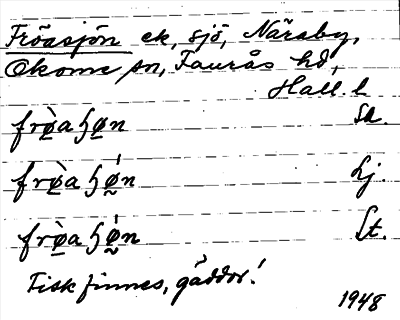 Fröasjön ek, sjö, Näraby,
Okome sn, Faurås hd,
Hall. l.
frø̀a ɧøn Sd.
frø̀a ɧǿn Lj.
frø̀a ɧǿn St.
Fisk finnes, gäddor!
1948